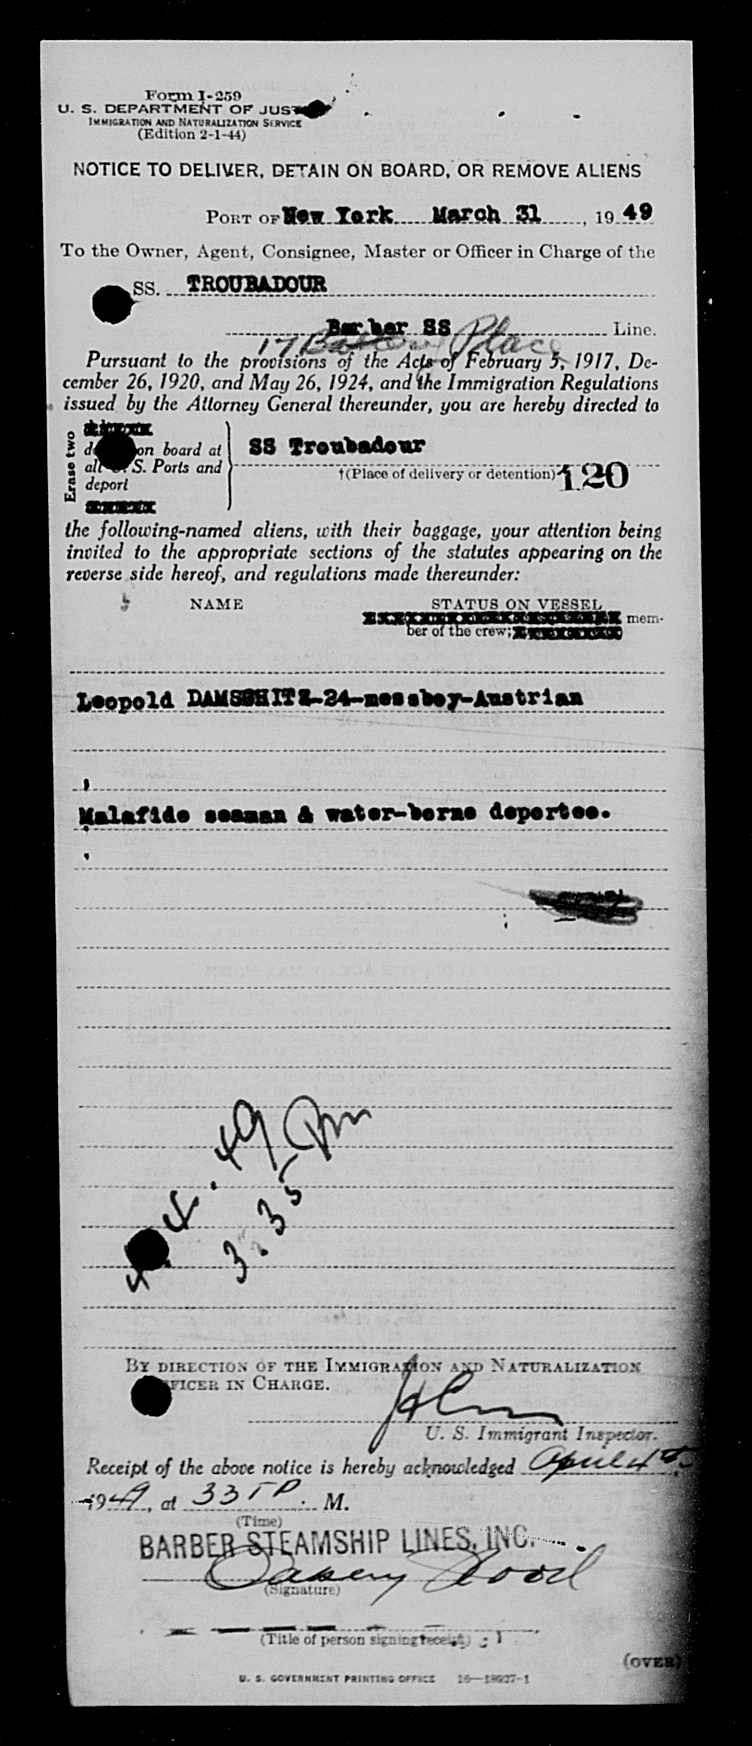 Form I-259
U. S. DEPARTMENT OF
IMMIGRATION AND NATURALIZATION SERVICE
(Edition 2-1-44)
NOTICE TO DELIVER, DETAIN ON BOARD, OR REMOVE ALIENS
PORT OF New York March 31, 1949
To the Owner, Agent, Consignee, Master or Officer in Charge of the
SS. TROUBADOUR
Barber SS Line.
17 Place
Pursuant to the provisions of the Acts of February 5, 1917, De-
cember 26, 1920, and May 26, 1924, and the Immigration Regulations
issued by the Attorney General thereunder, you are hereby directed to
Erase two
on board at
S. Ports and
deport
SS Troubadour
†(Place of delivery or detention)
120
the following-named aliens, with their baggage, your attention being
invited to the appropriate sections of the statutes appearing on the
reverse side hereof, and regulations made thereunder:
NAME STATUS ON VESSEL
mem-
ber of the crew;
Leopold -24-messboy-Austrian
Malafide seaman & water-borne deportee.
4.4.49
3.35 Pm
BY DIRECTION OF THE IMMIGRATION AND NATURALIZATION
IN CHARGE.
U. S. Immigrant Inspector.
Receipt of the above notice is hereby acknowledged April 4th,
1949, at 335 P. M.
(Time)
BARBER STEAMSHIP LINES, INC.
(Signature)
(Title of person signing receipt)
(OVER)
U. S. GOVERNMENT PRINTING OFFICE 16—18927-1